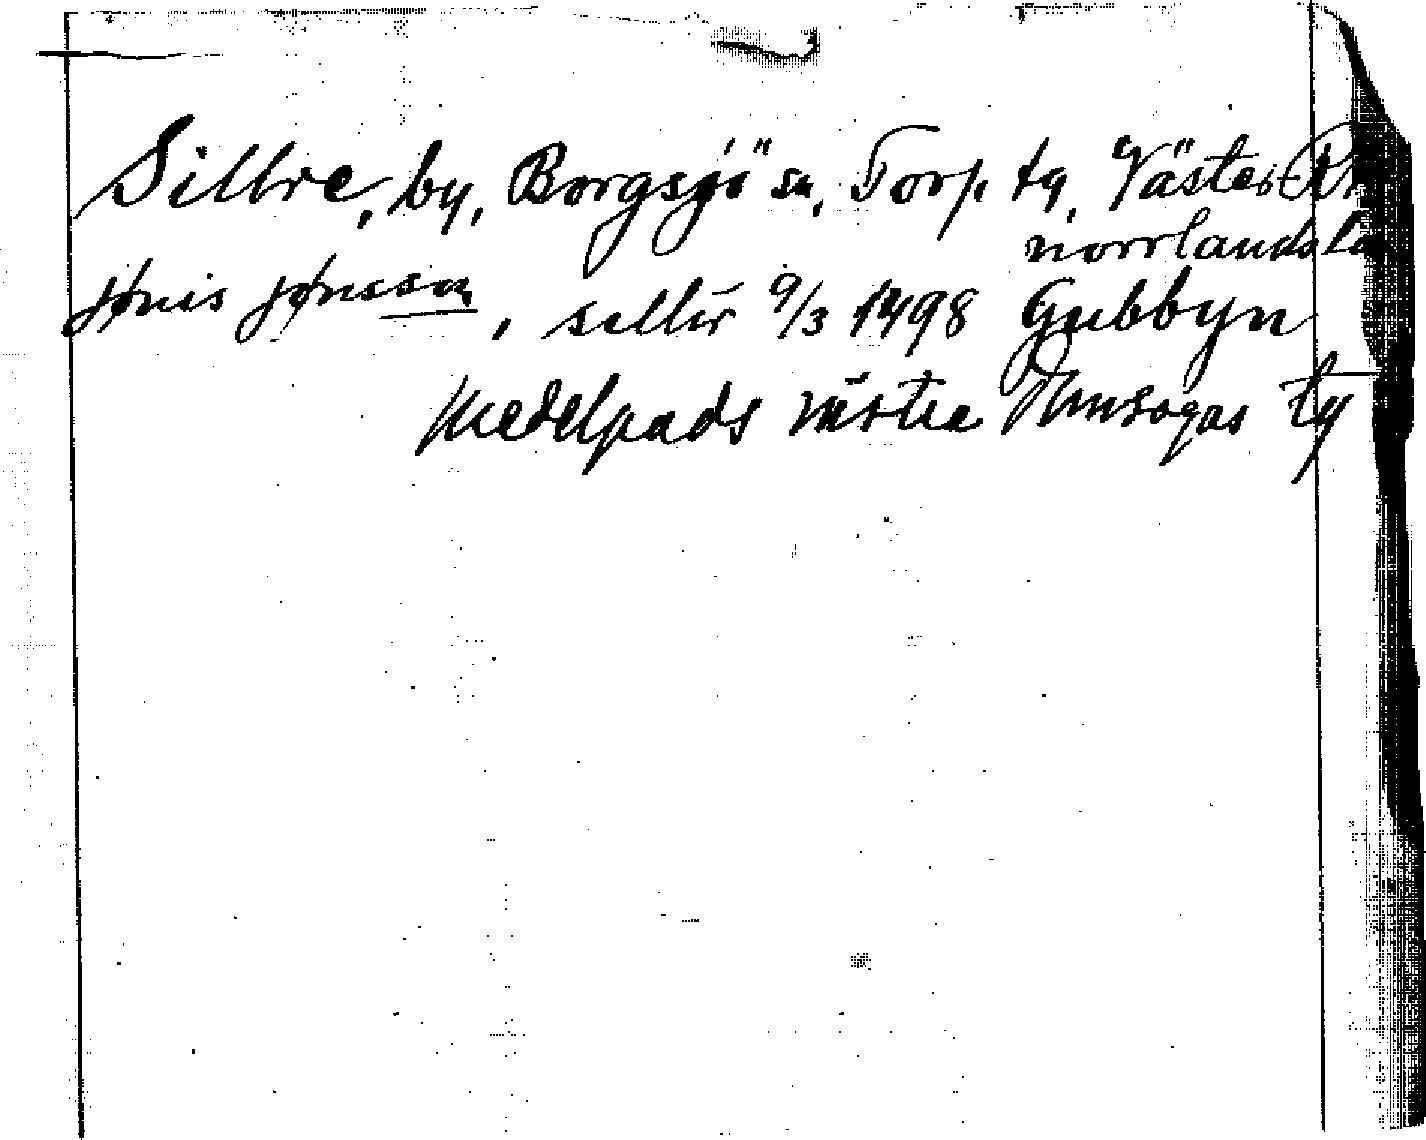 Sillre, by, Borgsjö sn, Torp tg, Väster
norrlands lä
Jønis Jønsson, selür 9/3 1498 Gubbyn
Medelpads västra domsagas tg